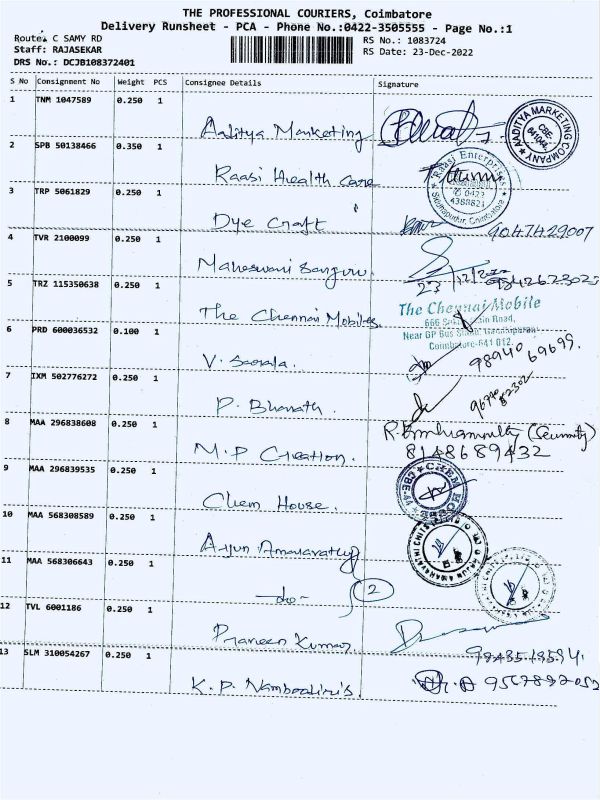 THE PROFESSIONAL COURIERS, Coimbatore
Delivery Runsheet - PCA - Phone No.:0422-3505555 - Page No.:1
Route: C SAMY RD
Staff: RAJASEKAR
DRS No.: DCJB108372401
RS No.: 1083724
RS Date: 23-Dec-2022
S No Consignment No Weight PCS Consignee Details Signature
1 TNM 1047589 0.250 1
Aaditya Marketing
AADITYA MARKETING COMPANY CBE
2 SPB 50138466 0.350 1
Raasi Health care
Raasi Enterprises 0422 4388821 Coimbatore
3 TRP 5061829 0.250 1
Dye Craft 9047429007
4 TVR 2100099 0.250 1
23/12/2022
5 TRZ 115350638 0.250 1
The Chennai Mobiles
The Chennai Mobile
666 Road,
Near GP Bus
Coimbatore-641 012.
6 PRD 600036532 0.100 1
V. Sarala. 98940 69699.
7 IXM 502776272 0.250 1
P. Bharath. 96790 82302
8 MAA 296838608 0.250 1
M.P Creation. (Security)
8148689432
9 MAA 296839535 0.250 1
Chem House.
CHEM HOUSE CBE-44
10 MAA 568308589 0.250 1
Arjun Amaravathy
11 MAA 568306643 0.250 1
-do- 2
12 TVL 6001186 0.250 1
Praveen Kumar
13 SLM 310054267 0.250 1
K. P. Namboodiri's.